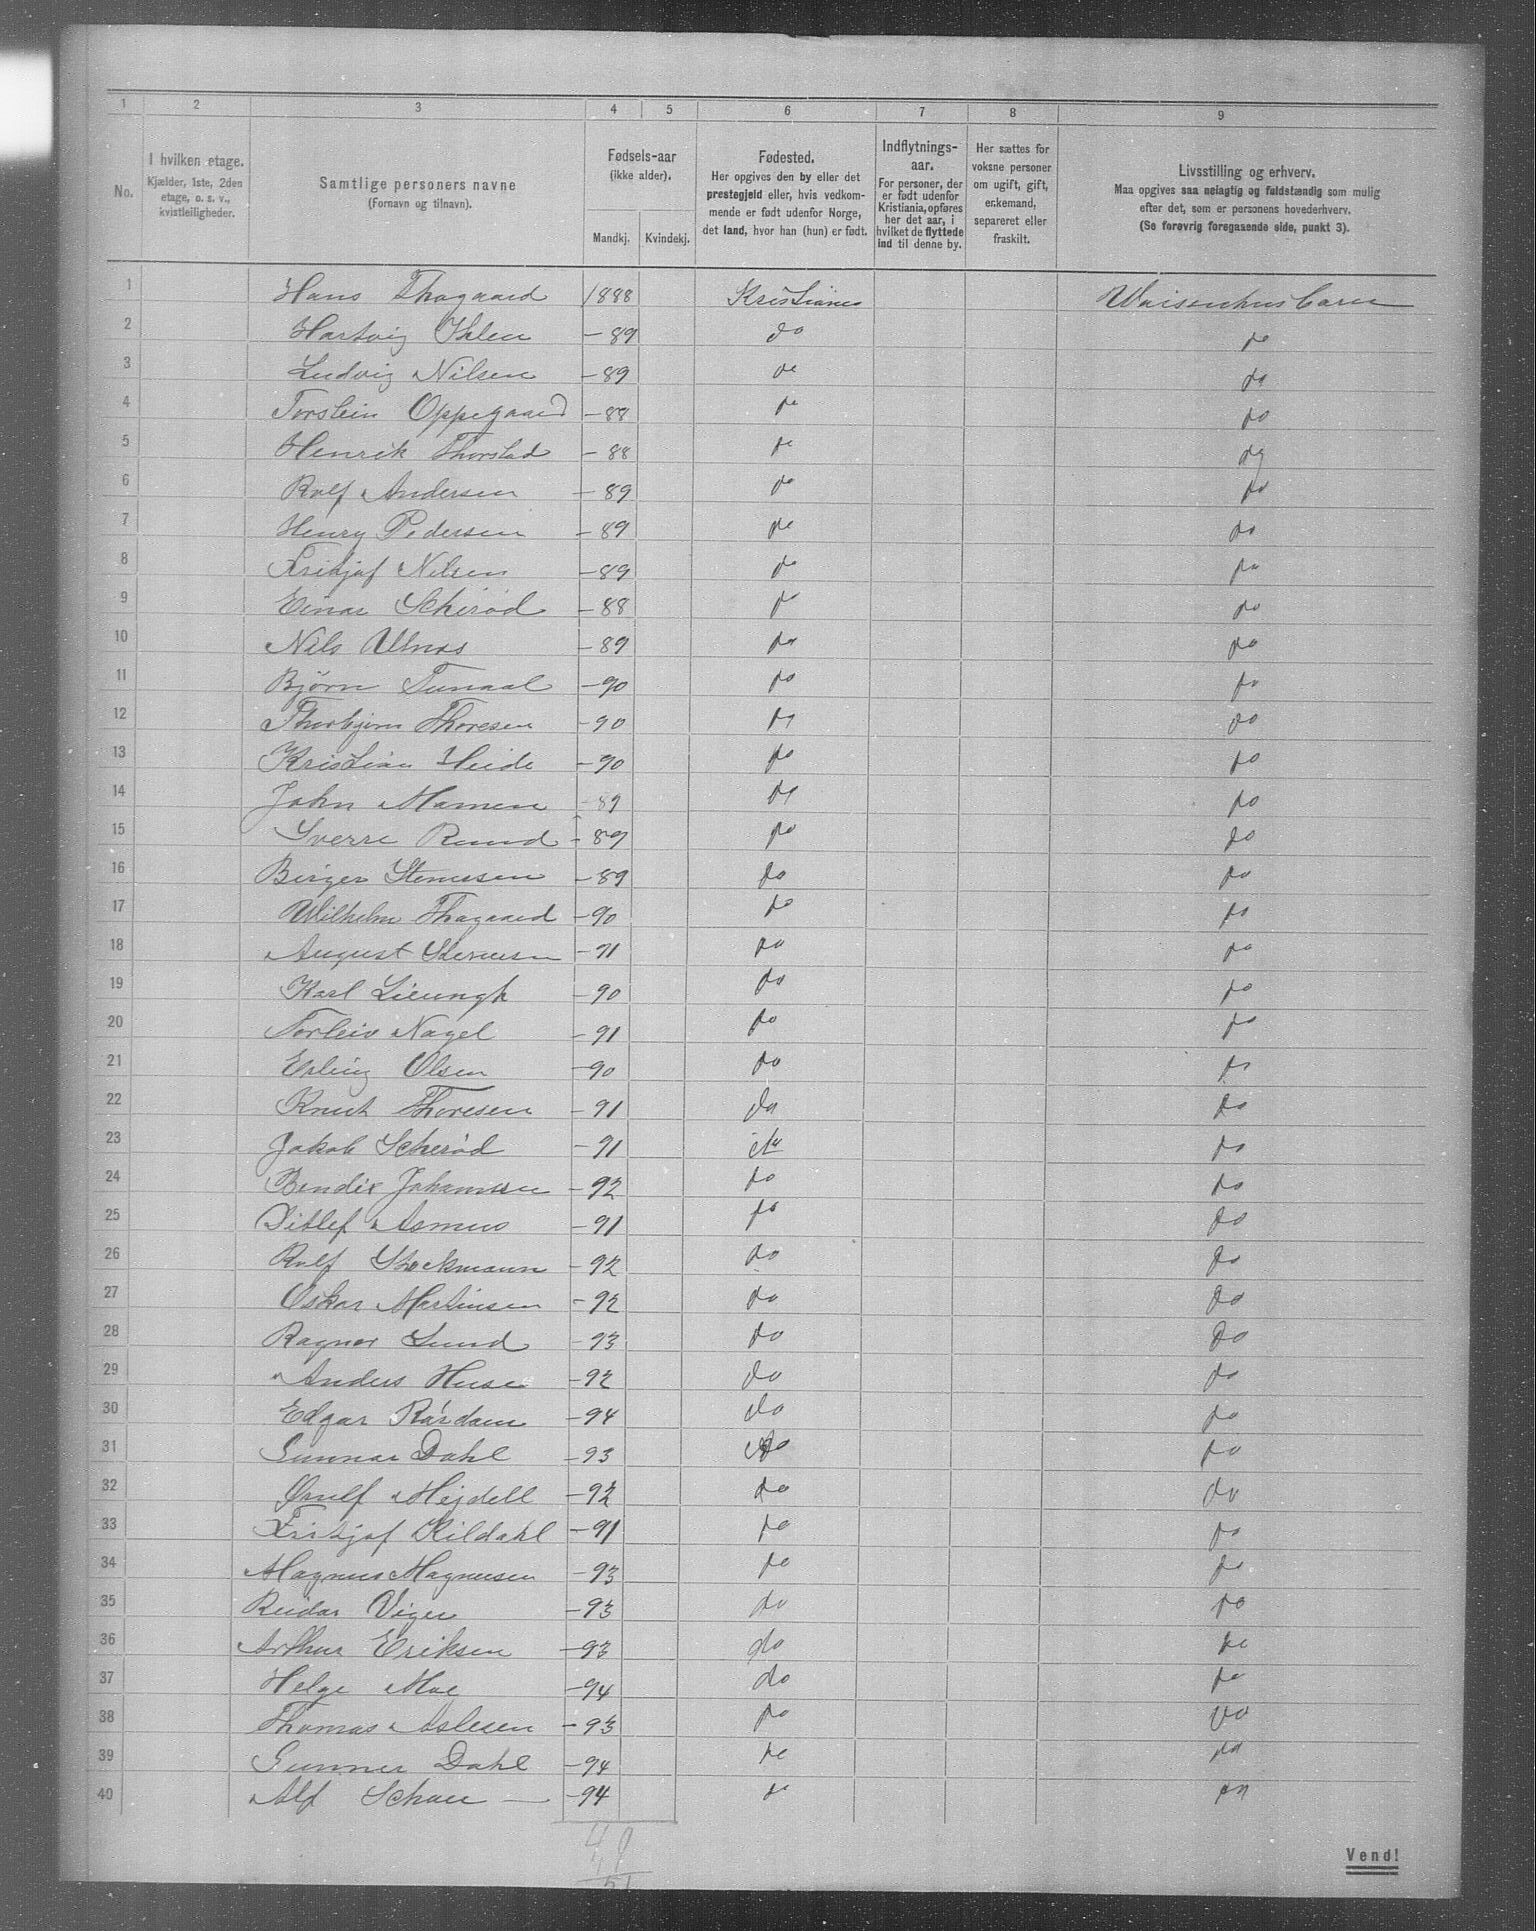 1 2 3 4 5 6 7 8 9
No.
I hvilken etage.
Kjælder, 1ste, 2den
etage, o. s. v.,
kvistleiligheder.
Samtlige personers navne
(Fornavn og tilnavn).
Fødsels-aar
(ikke alder).
Mandkj. Kvindekj.
Fødested.
Her opgives den by eller det
prestegjeld eller, hvis vedkom-
mende er født udenfor Norge,
det land, hvor han (hun) er født.
Indflytnings-
aar.
For personer, der
er født udenfor
Kristiania, opføres
her det aar, i
hvilket de flyttede
ind til denne by.
Her sættes for
voksne personer
om ugift, gift,
enkemand,
separeret eller
fraskilt.
Livsstilling og erhverv.
Maa opgives saa nøiagtig og fuldstændig som mulig
efter det, som er personens hovederhverv.
(Se forøvrig foregaaende side, punkt 3).
1 Hans Thagaard 1888 Kristiania Waisenhusbarn
2 Hartvig Ihlen - 89 do do
3 Ludvig Nilsen - 89 do do
4 Torstein Oppegaard - 88 do do
5 Henrik Thorstad - 88 do do
6 Rolf Andersen - 89 do do
7 Henry Pedersen - 89 do do
8 Fritjof Nilsen - 89 do do
9 Einar Scherød - 88 do do
10 Nils - 89 do do
11 Bjørn - 90 do do
12 Thorbjørn Thoresen - 90 do do
13 Kristian Heide - 90 do do
14 John Mamen - 89 do do
15 Sverre Ruud - 89 do do
16 Birger Stenersen - 89 do do
17 Wilhelm Thagaard - 90 do do
18 August Stenersen - 91 do do
19 Karl Lieungh - 90 do do
20 Torleiv Nagel - 91 do do
21 Erling Olsen - 90 do do
22 Knut Thoresen - 91 do do
23 Jakob Scherød - 91 do do
24 Bendix Johannesen - 92 do do
25 Ditlef Asmus - 91 do do
26 Rolf Stockmann - 92 do do
27 Oskar Martinsen - 92 do do
28 Ragnar Lund - 93 do do
29 Anders Huse - 92 do do
30 Edgar Rørdam - 94 do do
31 Gunnar Dahl - 93 do do
32 Ørnulf Mejdell - 92 do do
33 Fritjof Kildahl - 91 do do
34 Magnus Magnusen - 93 do do
35 Reidar Viger - 93 do do
36 Arthur Eriksen - 93 do do
37 Helge Moe - 94 do do
38 Thomas Aslesen - 93 do do
39 Gunner Dahl - 94 do do
40 Alf Schau - 94 do do
Vend!